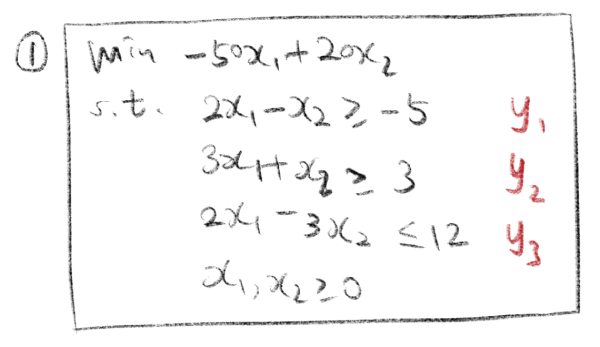 ① min -50x₁+20x₂
s.t. 2x₁-x₂ ≥ -5 y₁
3x₁+x₂ ≥ 3 y₂
2x₁-3x₂ ≤ 12 y₃
x₁,x₂ ≥ 0